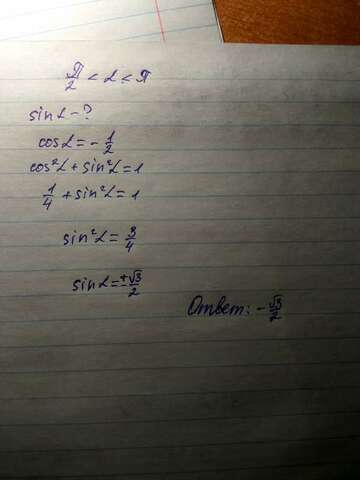 π/2 < α < π
sinα - ?
cosα = -1/2
cos²α + sin²α = 1
1/4 + sin²α = 1
sin²α = 3/4
sinα = ±√3/2
Ответ: -√3/2